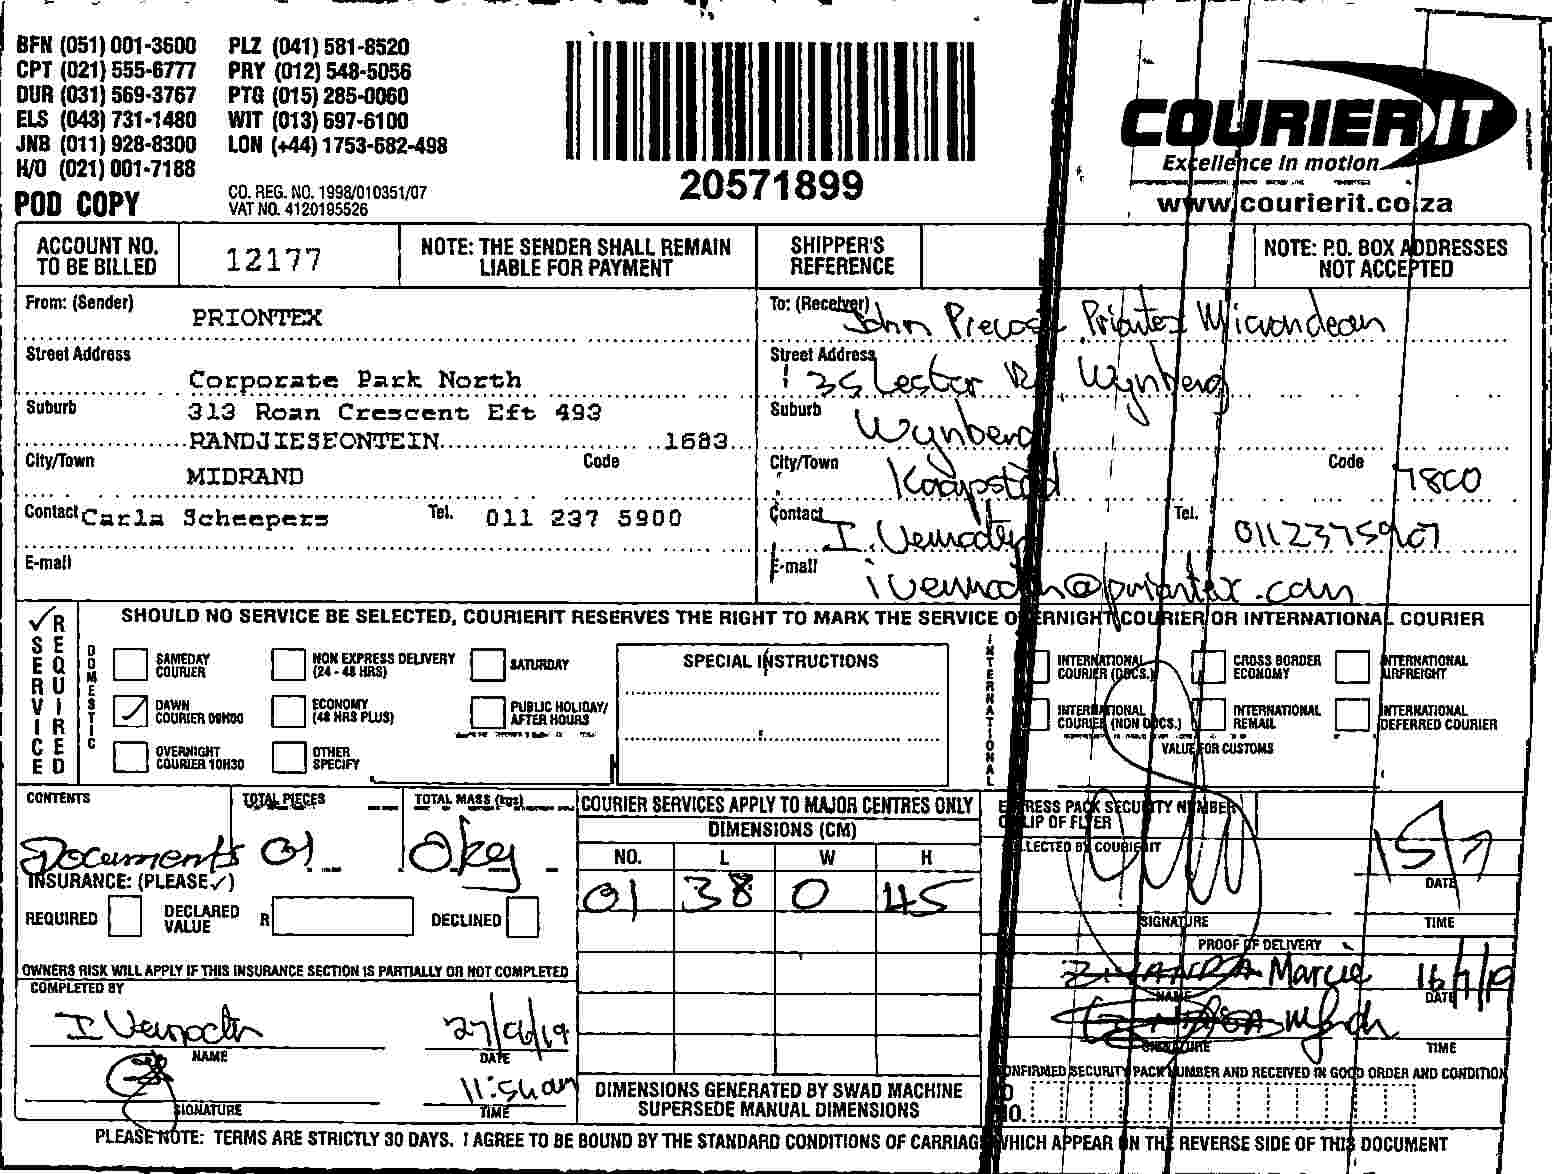 BFN (051) 001-3600 PLZ (041) 581-8520
CPT (021) 555-6777 PRY (012) 548-5056
DUR (031) 569-3767 PTG (015) 285-0060
ELS (043) 731-1480 WIT (013) 697-6100
JNB (011) 928-8300 LON (+44) 1753-682-498
H/O (021) 001-7188
POD COPY
CO. REG. NO. 1998/010351/07
VAT NO. 4120195526
20571899
COURIER IT
Excellence in motion
www.courierit.co.za
ACCOUNT NO. TO BE BILLED 12177
NOTE: THE SENDER SHALL REMAIN LIABLE FOR PAYMENT
SHIPPER'S REFERENCE
NOTE: P.O. BOX ADDRESSES NOT ACCEPTED
From: (Sender) PRIONTEX
Street Address
Corporate Park North
Suburb 313 Roan Crescent Eft 493
RANDJIESFONTEIN 1683
City/Town MIDRAND Code
Contact Carla Scheepers Tel. 011 237 5900
E-mail
To: (Receiver) John Priontex
Street Address
35 Rd Wynberg
Suburb Wynberg
City/Town Kaapstad Code 7800
Contact I. Tel. 0112375907
E-mail
SERVICE REQUIRED
SHOULD NO SERVICE BE SELECTED, COURIERIT RESERVES THE RIGHT TO MARK THE SERVICE OVERNIGHT COURIER OR INTERNATIONAL COURIER
DOMESTIC
SAMEDAY COURIER
NON EXPRESS DELIVERY (24 - 48 HRS)
SATURDAY
DAWN COURIER 09H00
ECONOMY (48 HRS PLUS)
PUBLIC HOLIDAY/ AFTER HOURS
OVERNIGHT COURIER 10H30
OTHER SPECIFY
SPECIAL INSTRUCTIONS
INTERNATIONAL
INTERNATIONAL COURIER (DOCS.)
CROSS BORDER ECONOMY
INTERNATIONAL AIRFREIGHT
INTERNATIONAL COURIER (NON DOCS.)
INTERNATIONAL REMAIL
INTERNATIONAL DEFERRED COURIER
VALUE FOR CUSTOMS
CONTENTS TOTAL PIECES TOTAL MASS (kgs)
Documents 01 0kg
INSURANCE: (PLEASE ✓)
REQUIRED DECLARED VALUE R DECLINED
OWNERS RISK WILL APPLY IF THIS INSURANCE SECTION IS PARTIALLY OR NOT COMPLETED
COMPLETED BY
I 27/06/19
NAME DATE
11:54am
SIGNATURE TIME
COURIER SERVICES APPLY TO MAJOR CENTRES ONLY
DIMENSIONS (CM)
NO. L W H
01 38 0 45
DIMENSIONS GENERATED BY SWAD MACHINE SUPERSEDE MANUAL DIMENSIONS
EXPRESS PACK SECURITY NUMBER OR SLIP OF FLYER
COLLECTED BY COURIERIT
15/7
DATE
SIGNATURE TIME
PROOF OF DELIVERY
Marcie 16/7/19
NAME DATE
SIGNATURE TIME
CONFIRMED SECURITY PACK NUMBER AND RECEIVED IN GOOD ORDER AND CONDITION
NO.
PLEASE NOTE: TERMS ARE STRICTLY 30 DAYS. I AGREE TO BE BOUND BY THE STANDARD CONDITIONS OF CARRIAGE WHICH APPEAR ON THE REVERSE SIDE OF THIS DOCUMENT